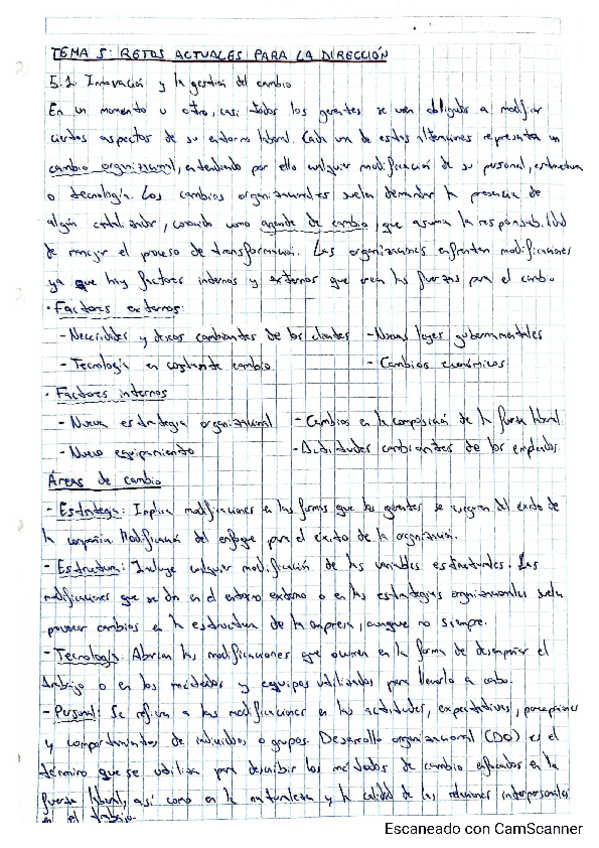 TEMA 5: RETOS ACTUALES PARA LA DIRECCIÓN
5.1 Innovación y la gestión del cambio
En un momento u otro, casi todos los gerentes se ven obligados a modificar
ciertos aspectos de su entorno laboral. Cada una de estas alteraciones representa un
cambio organizacional, entendiendo por ello cualquier modificación de su personal, estructura
o tecnología. Los cambios organizacionales suelen demandar la presencia de
algún catalizador, conocido como agente de cambio, que asuma la responsabilidad
de manejar el proceso de transformación. Las organizaciones enfrentan modificaciones
ya que hay factores internos y externos que crean las fuerzas para el cambio
· Factores externos:
- Necesidades y deseos cambiantes de los clientes - Nuevas leyes gubernamentales
- Tecnología en constante cambio - Cambios económicos
· Factores internos
- Nueva estrategia organizacional - Cambios en la composición de la fuerza laboral
- Nuevo equipamiento - Actitudes cambiantes de los empleados
Áreas de cambio
- Estrategia: Implica modificaciones en las formas que los gerentes se aseguran del éxito de
la compañía. Modificación del enfoque para el éxito de la organización.
- Estructura: Incluye cualquier modificación de las variables estructurales. Las
modificaciones que se dan en el entorno externo o en las estrategias organizacionales suelen
provocar cambios en la estructura de la empresa, aunque no siempre.
- Tecnología: Abarcan las modificaciones que ocurren en la forma de desempeñar el
trabajo o en los métodos y equipos utilizados para llevarlo a cabo.
- Personal: Se refieren a las modificaciones en las actitudes, expectativas, percepciones
y comportamientos de individuos o grupos. Desarrollo organizacional (DO) es el
término que se utiliza para describir los métodos de cambio enfocados en la
fuerza laboral, así como en la naturaleza y la calidad de las relaciones interpersonales
en el trabajo.
Escaneado con CamScanner